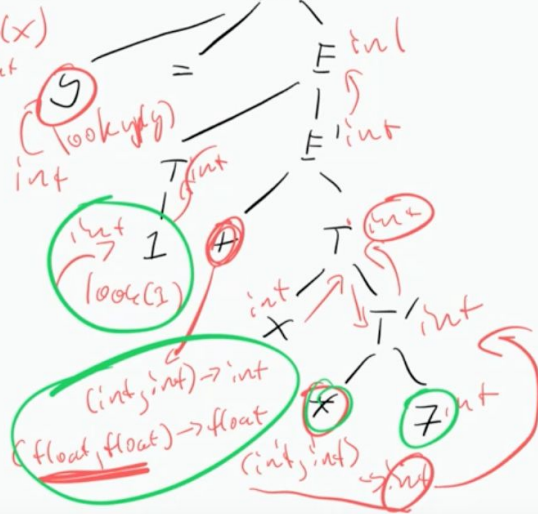 (x)
E int
y =
lookup(y)
int
E' int
T int
int 1
look(1)
+
T int
int
x
T' int
(int, int) → int
(float, float) → float
* 7 int
(int, int) → int